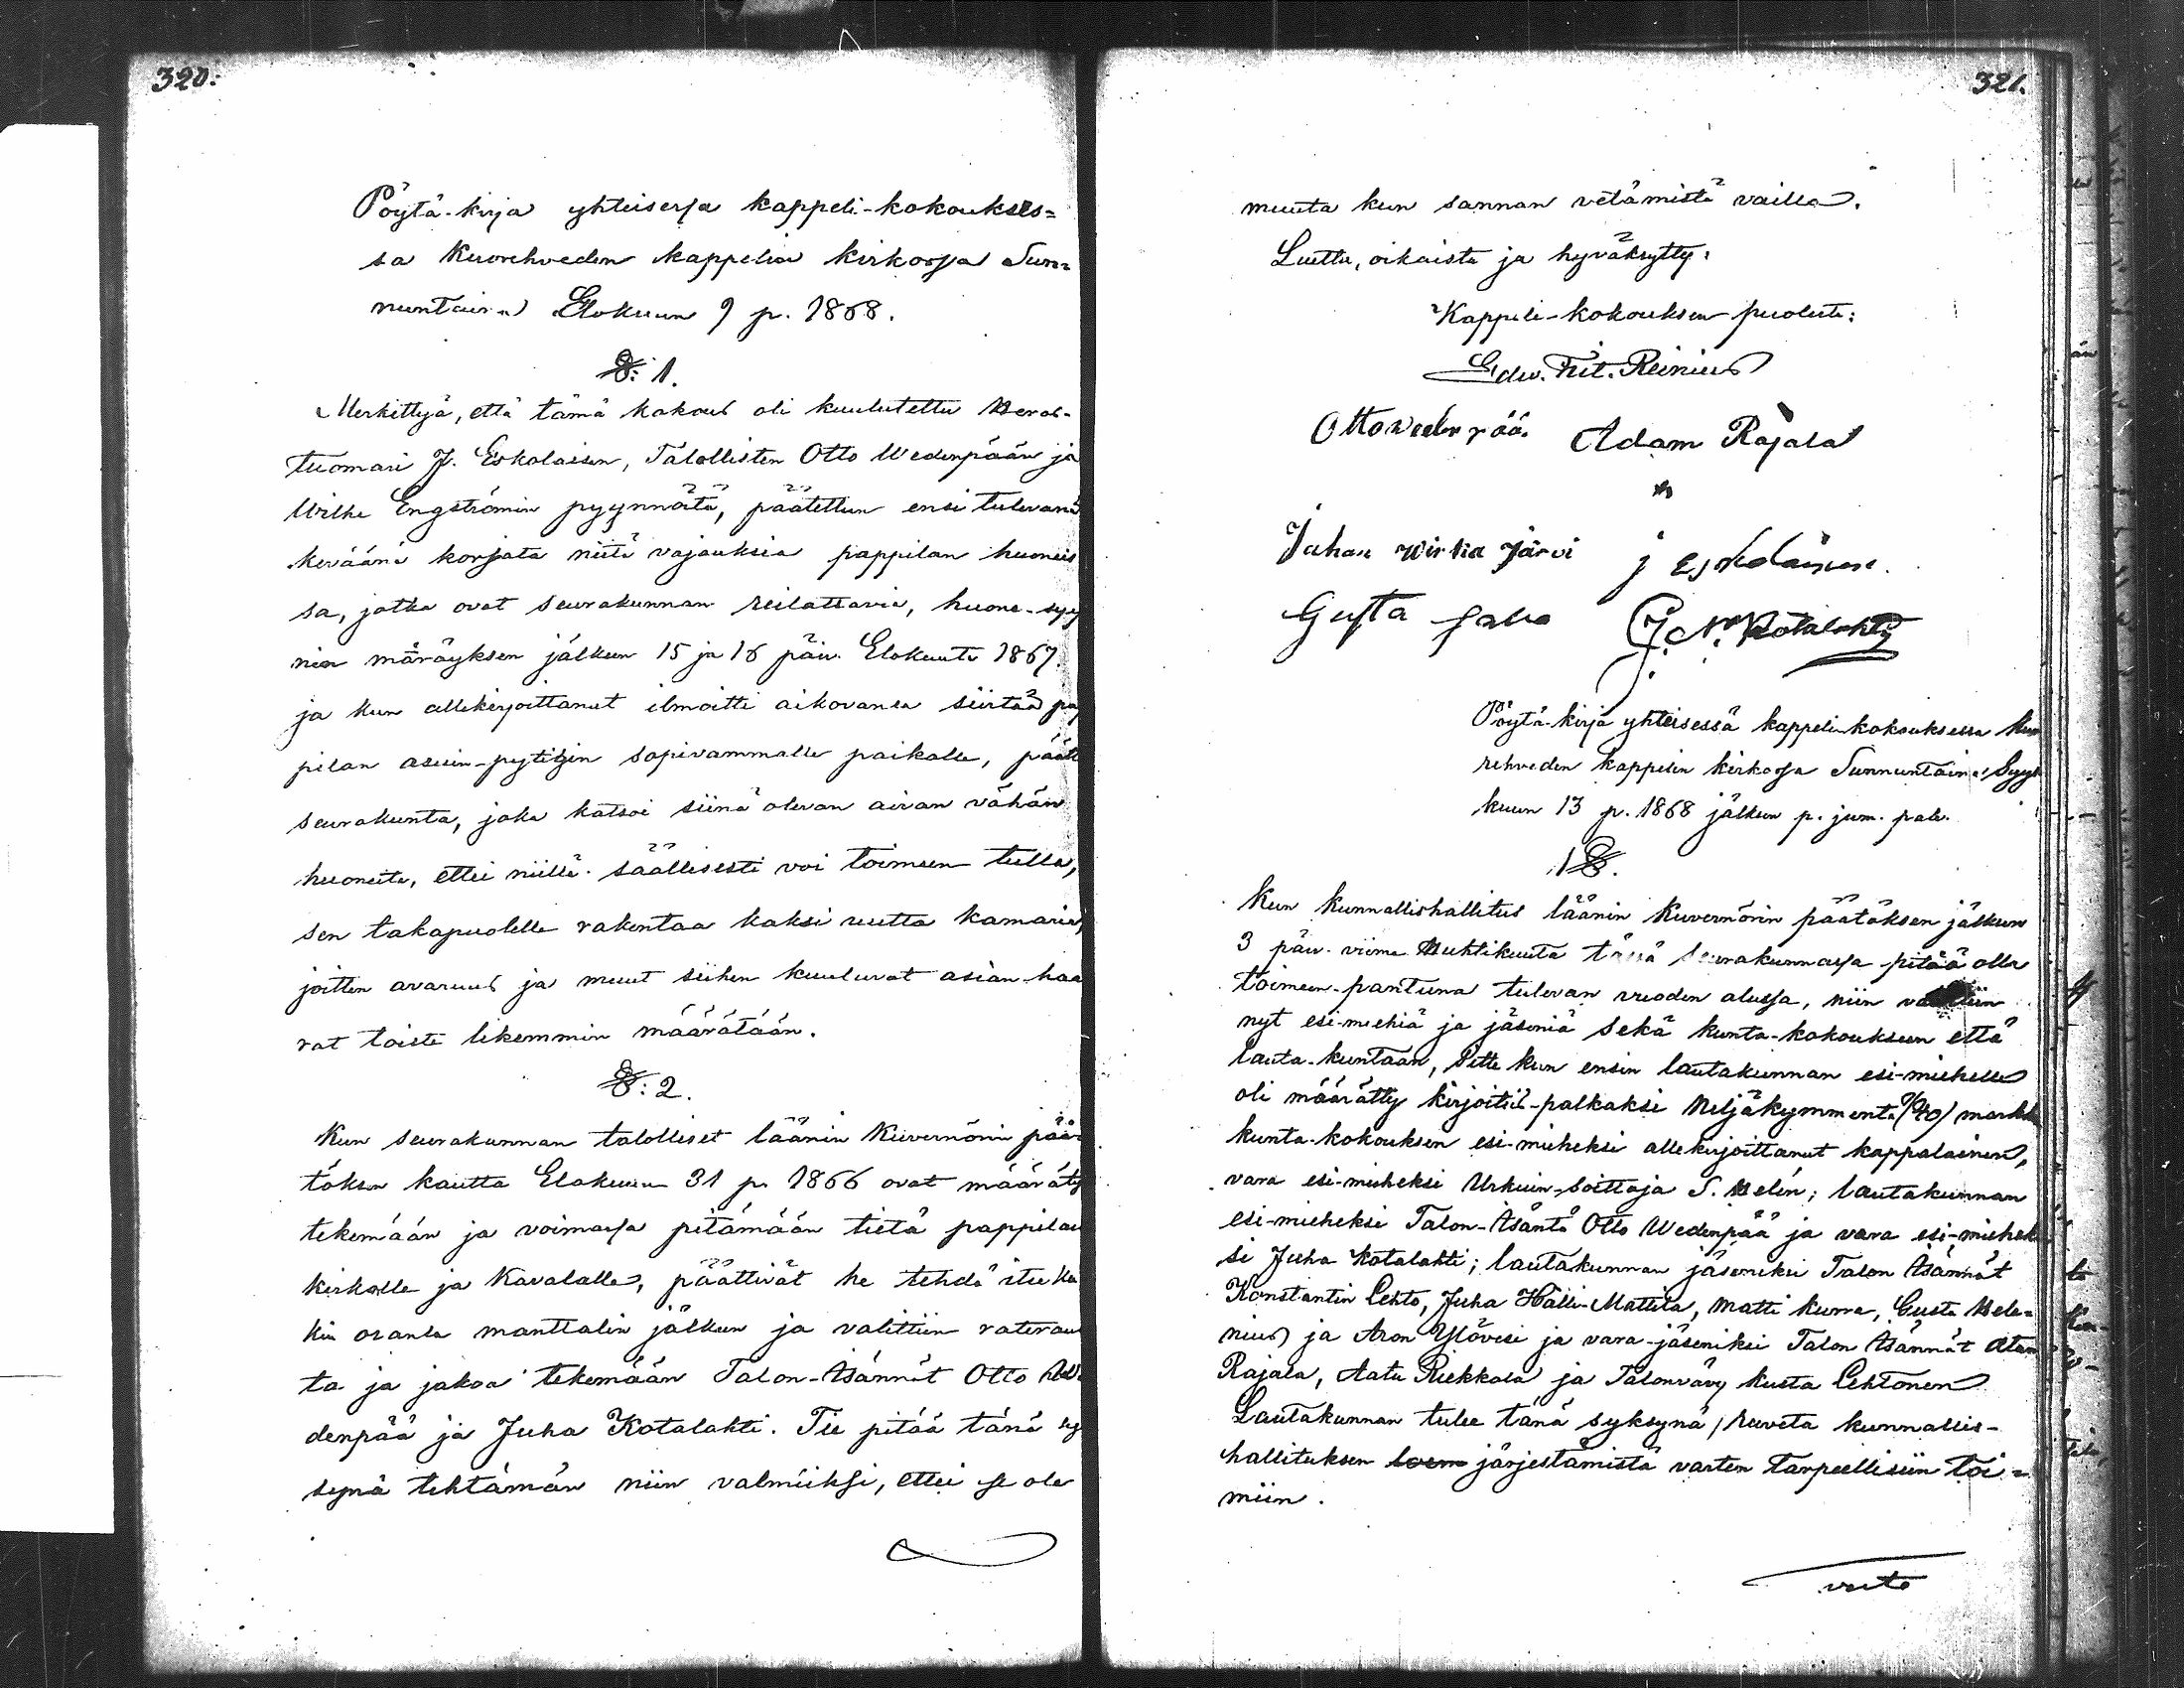 320.
Pöytä-kirja yhteisessa kappeli-kokoukses=
sa Kuorehveden kappelin kirkossa Sun=
nuntaina Elokuun 9 p. 1868.
§: 1.
Merkittyä, että tämä kokous oli kuulutettu Heras-
tuomari J. Eskolaisen, Talollisten Otto Wedenpään ja
Wilhe Engströmin pyynnöstä, päätettiin ensi tulevana
keväänä korjata niitä vajauksia pappilan huoneis
sa, jotka ovat seurakunnan reilattavia, huone-syy
nin märäyksen jälkeen 15 ja 16 päiv. Elokuuta 1867.
ja kun allekirjoittanut ilmoitti aikovansa siirtää pap
pilan asuin-pytingin sopivammalle paikalle, päätt
seurakunta, joka katsoi siinä olevan aivan vähän
huoneita, ettei niillä säällisesti voi toimeen tulla,
sen takapuolelle rakentaa kaksi uutta kamaria,
joitten avaruus ja muut siihen kuuluvat asian-haa
rat toiste likemmin määrätään.
§: 2.
Kun seurakunnan talolliset läänin Kuvernörin pää
töksen kautta Elokuun 31 p. 1866 ovat määrätyt
tekemään ja voimassa pitämään tietä pappilan
kirkolle ja Kavalalle, päättivät he tehdä itse ku
kin osansa manttalin jälkeen ja valittiin
ta ja jakoa tekemään Talon-Isännät Otto We
denpää ja Juha Kotalahti. Tie pitää tänä sy
synä tehtämän niin valmiiksi, ettei se ole
321.
muuta kun sannan vetämistä vailla.
Luettu, oikaistu ja hyväksytty:
Kappeli-kokouksen puolesta:
Edw. Fri. Reinius
Otto Wedenpää Adam Rajala
Juhan Wirha Järvi J Eskolainen.
Gusta J. N. Kotalahti
Pöytä-kirja yhteisessä kappelin kokouksessa Kuo
rehveden kappelin kirkossa Sunnuntaina Syys
kuun 13 p. 1868 jälkeen p. jum. palv.
1 §.
Kun kunnallishallitus läänin Kuvernörin päätöksen jälkeen
3 päiv. viime Huhtikuuta tässä seurakunnassa pitää olla
toimeen-pantuna tulevan vuoden alussa, niin valittiin
nyt esi-miehiä ja jäseniä sekä kunta-kokoukseen että
lauta-kuntaan, Sitte kun ensin lautakunnan esi-miehelle
oli määrätty kirjoitus-palkaksi Neljäkymmentä (40) markka
kunta-kokouksen esi-mieheksi allekirjoittanut kappalainen,
vara esi-mieheksi Urkuin-soittaja S. Helén; lautakunnan
esi-mieheksi Talon-Isäntä Otto Wedenpää ja vara esi-miehek
si Juha Kotalahti; lautakunnan jäseniksi Talon Isännät
Konstantin Lehto, Juha Halli-Mattila, Matti Kurra, Gusta Hele=
nius ja Aron Ylövesi ja vara-jäseniksi Talon Isännät Atam
Rajala, Aatu Riekkola ja Talonvävy Kusta Lehtonen
Lautakunnan tulee tänä syksynä ruveta kunnallis-
hallituksen järjestämistä varten tarpeellisiin toi=
miin.